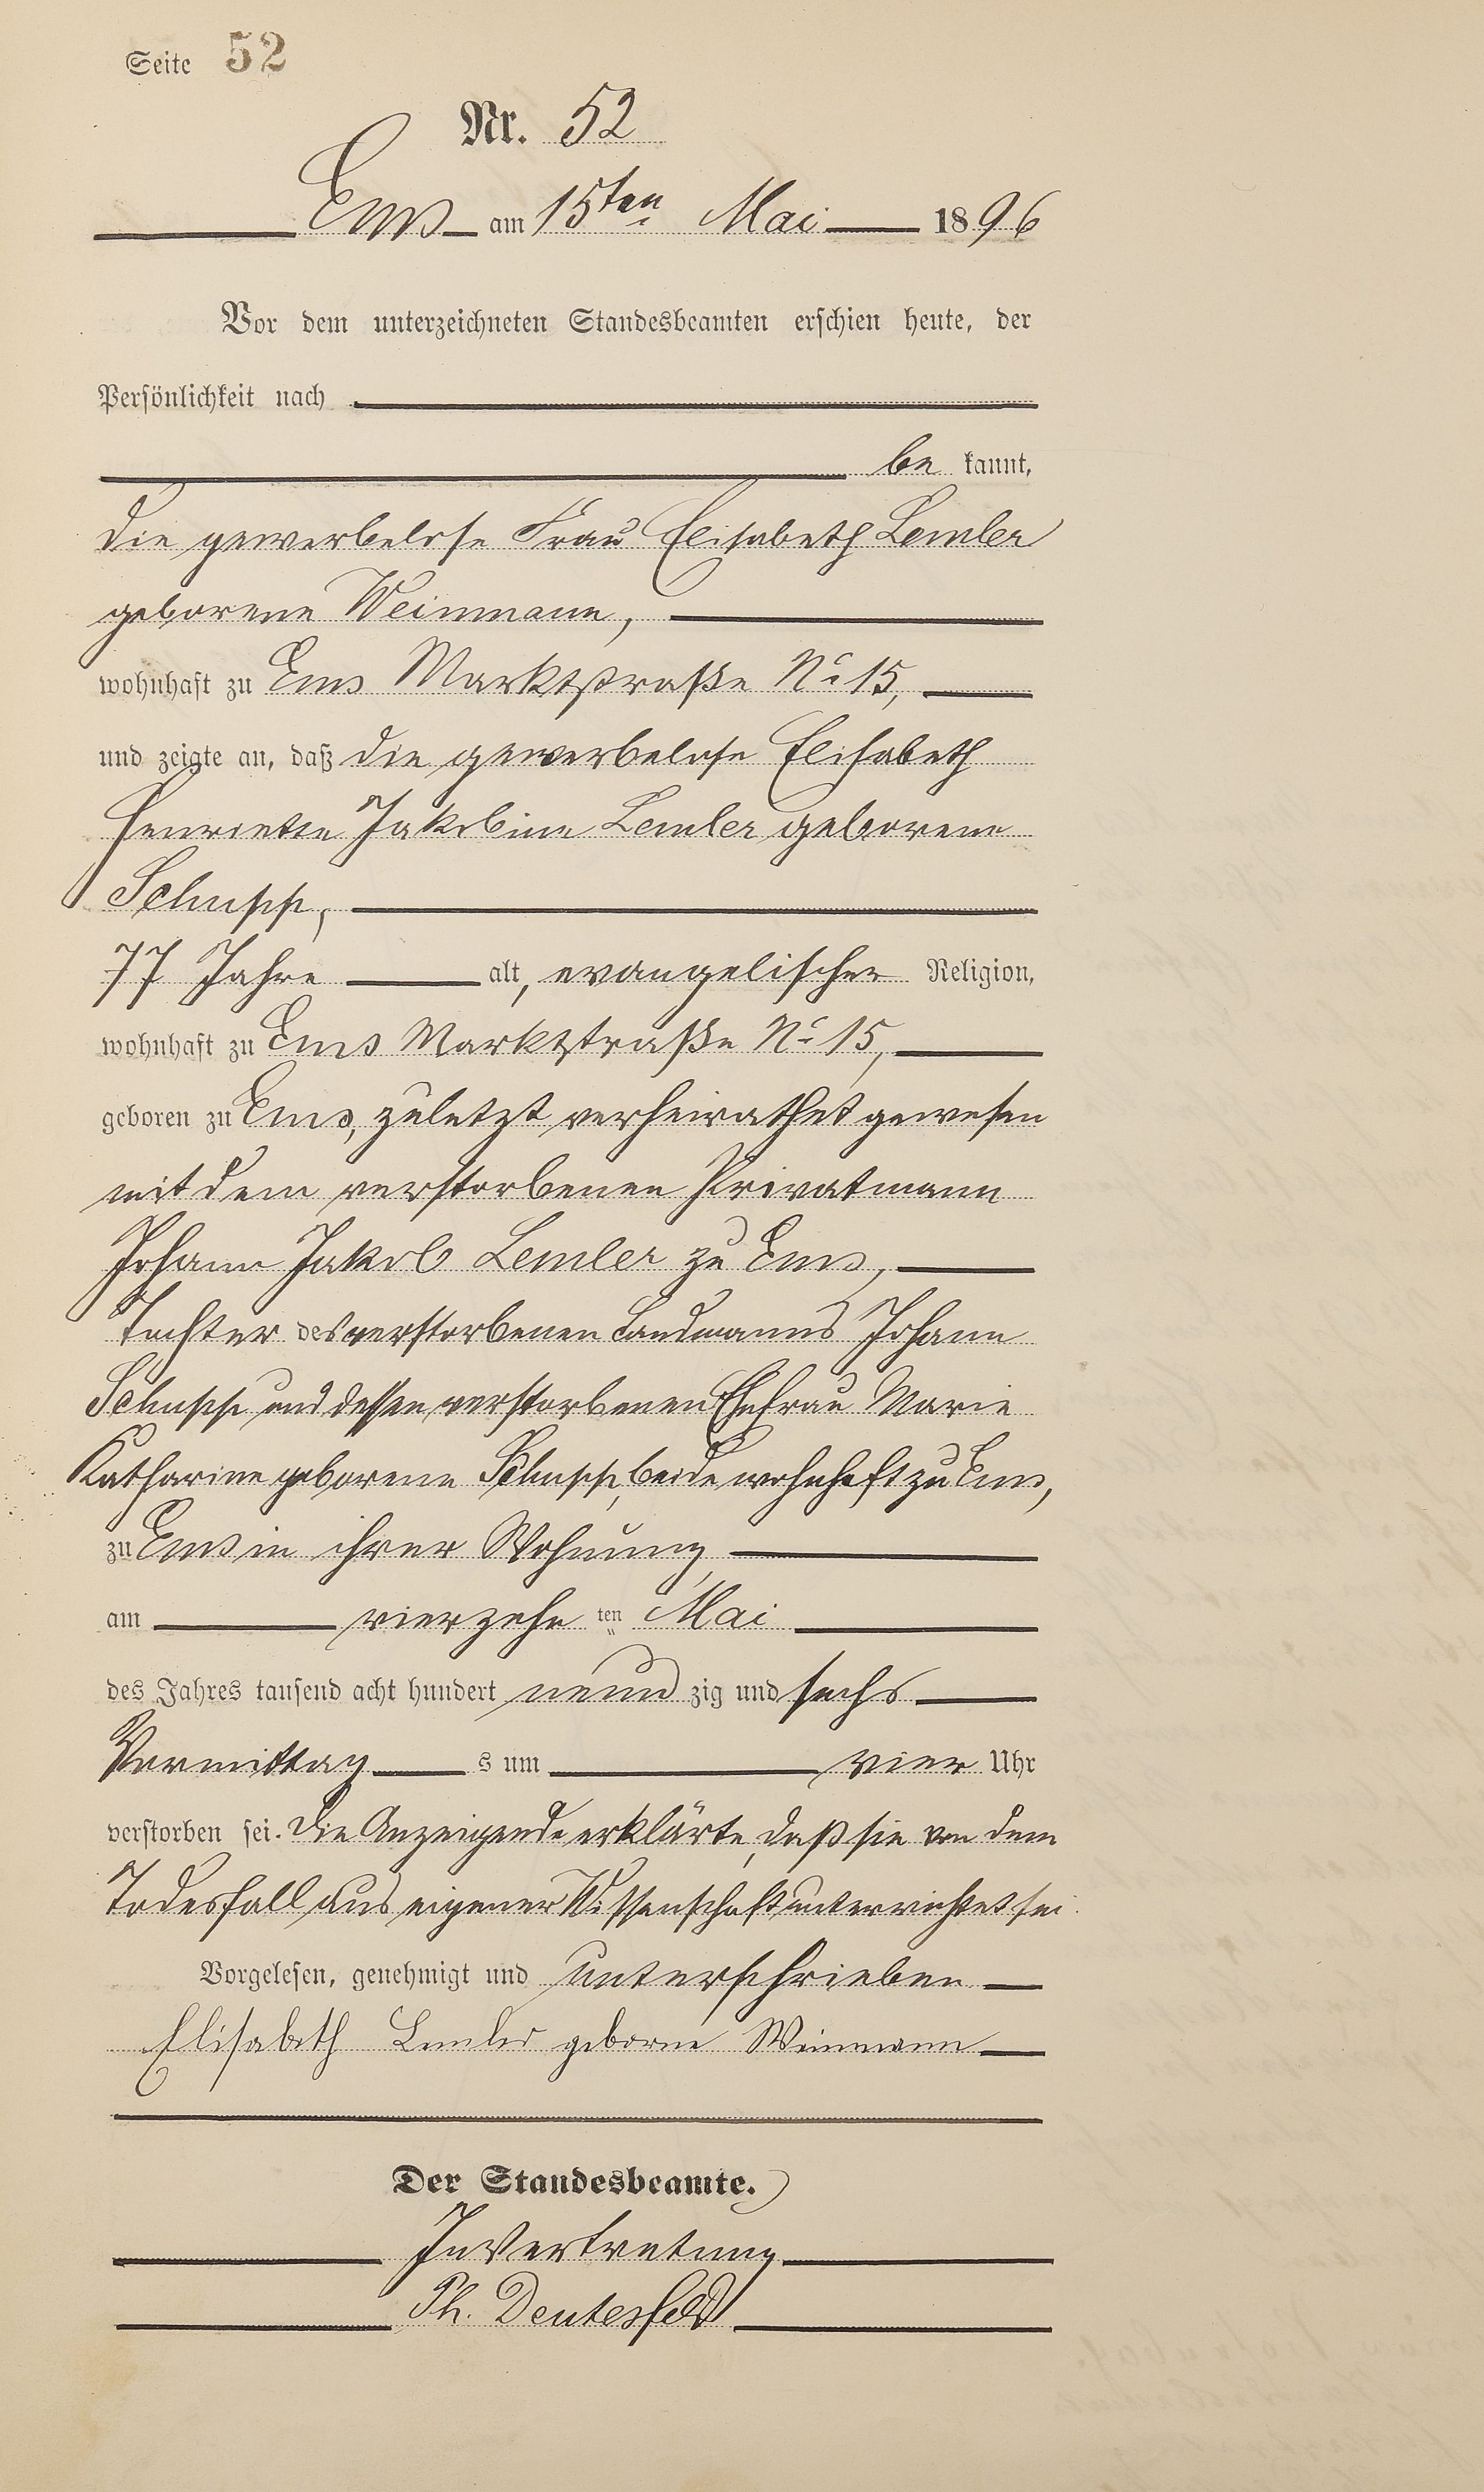 Seite 52
Nr. 52
Ems am 15ten Mai 1896
Vor dem unterzeichneten Standesbeamten erschien heute, der
Persönlichkeit nach
be kannt,
die gewerbelose Frau Elisabeth Lemler
geborene Weinmann,
wohnhaft zu Ems Marktstraße No 15,
und zeigte an, daß die gewerbelose Elisabeth
Henriette Jakobine Lemler geborene
Schupp,
77 Jahre alt, evangelischer Religion,
wohnhaft zu Ems Marktstraße No 15,
geboren zu Ems, zuletzt verheirathet gewesen
mit dem verstorbenen Privatmann
Johann Jakob Lemler zu Ems,
Tochter des verstorbenen Landmanns Johann
Schupp und dessen verstorbenen Ehefrau Marie
Katharine geborene Schupp, beide wohnhaft zu Ems,
zu Ems in ihrer Wohnung
am vierzehn ten Mai
des Jahres tausend acht hundert neun zig und sechs
Vormittag s um vier Uhr
verstorben sei. Die Anzeigende erklärte, daß sie von dem
Todesfall aus eigener Wissenschaft unterrichtet sei.
Vorgelesen, genehmigt und unterschrieben
Elisabeth Lemler geborne Weinmann
Der Standesbeamte.
In Vertretung
Ph. Deutesfeld